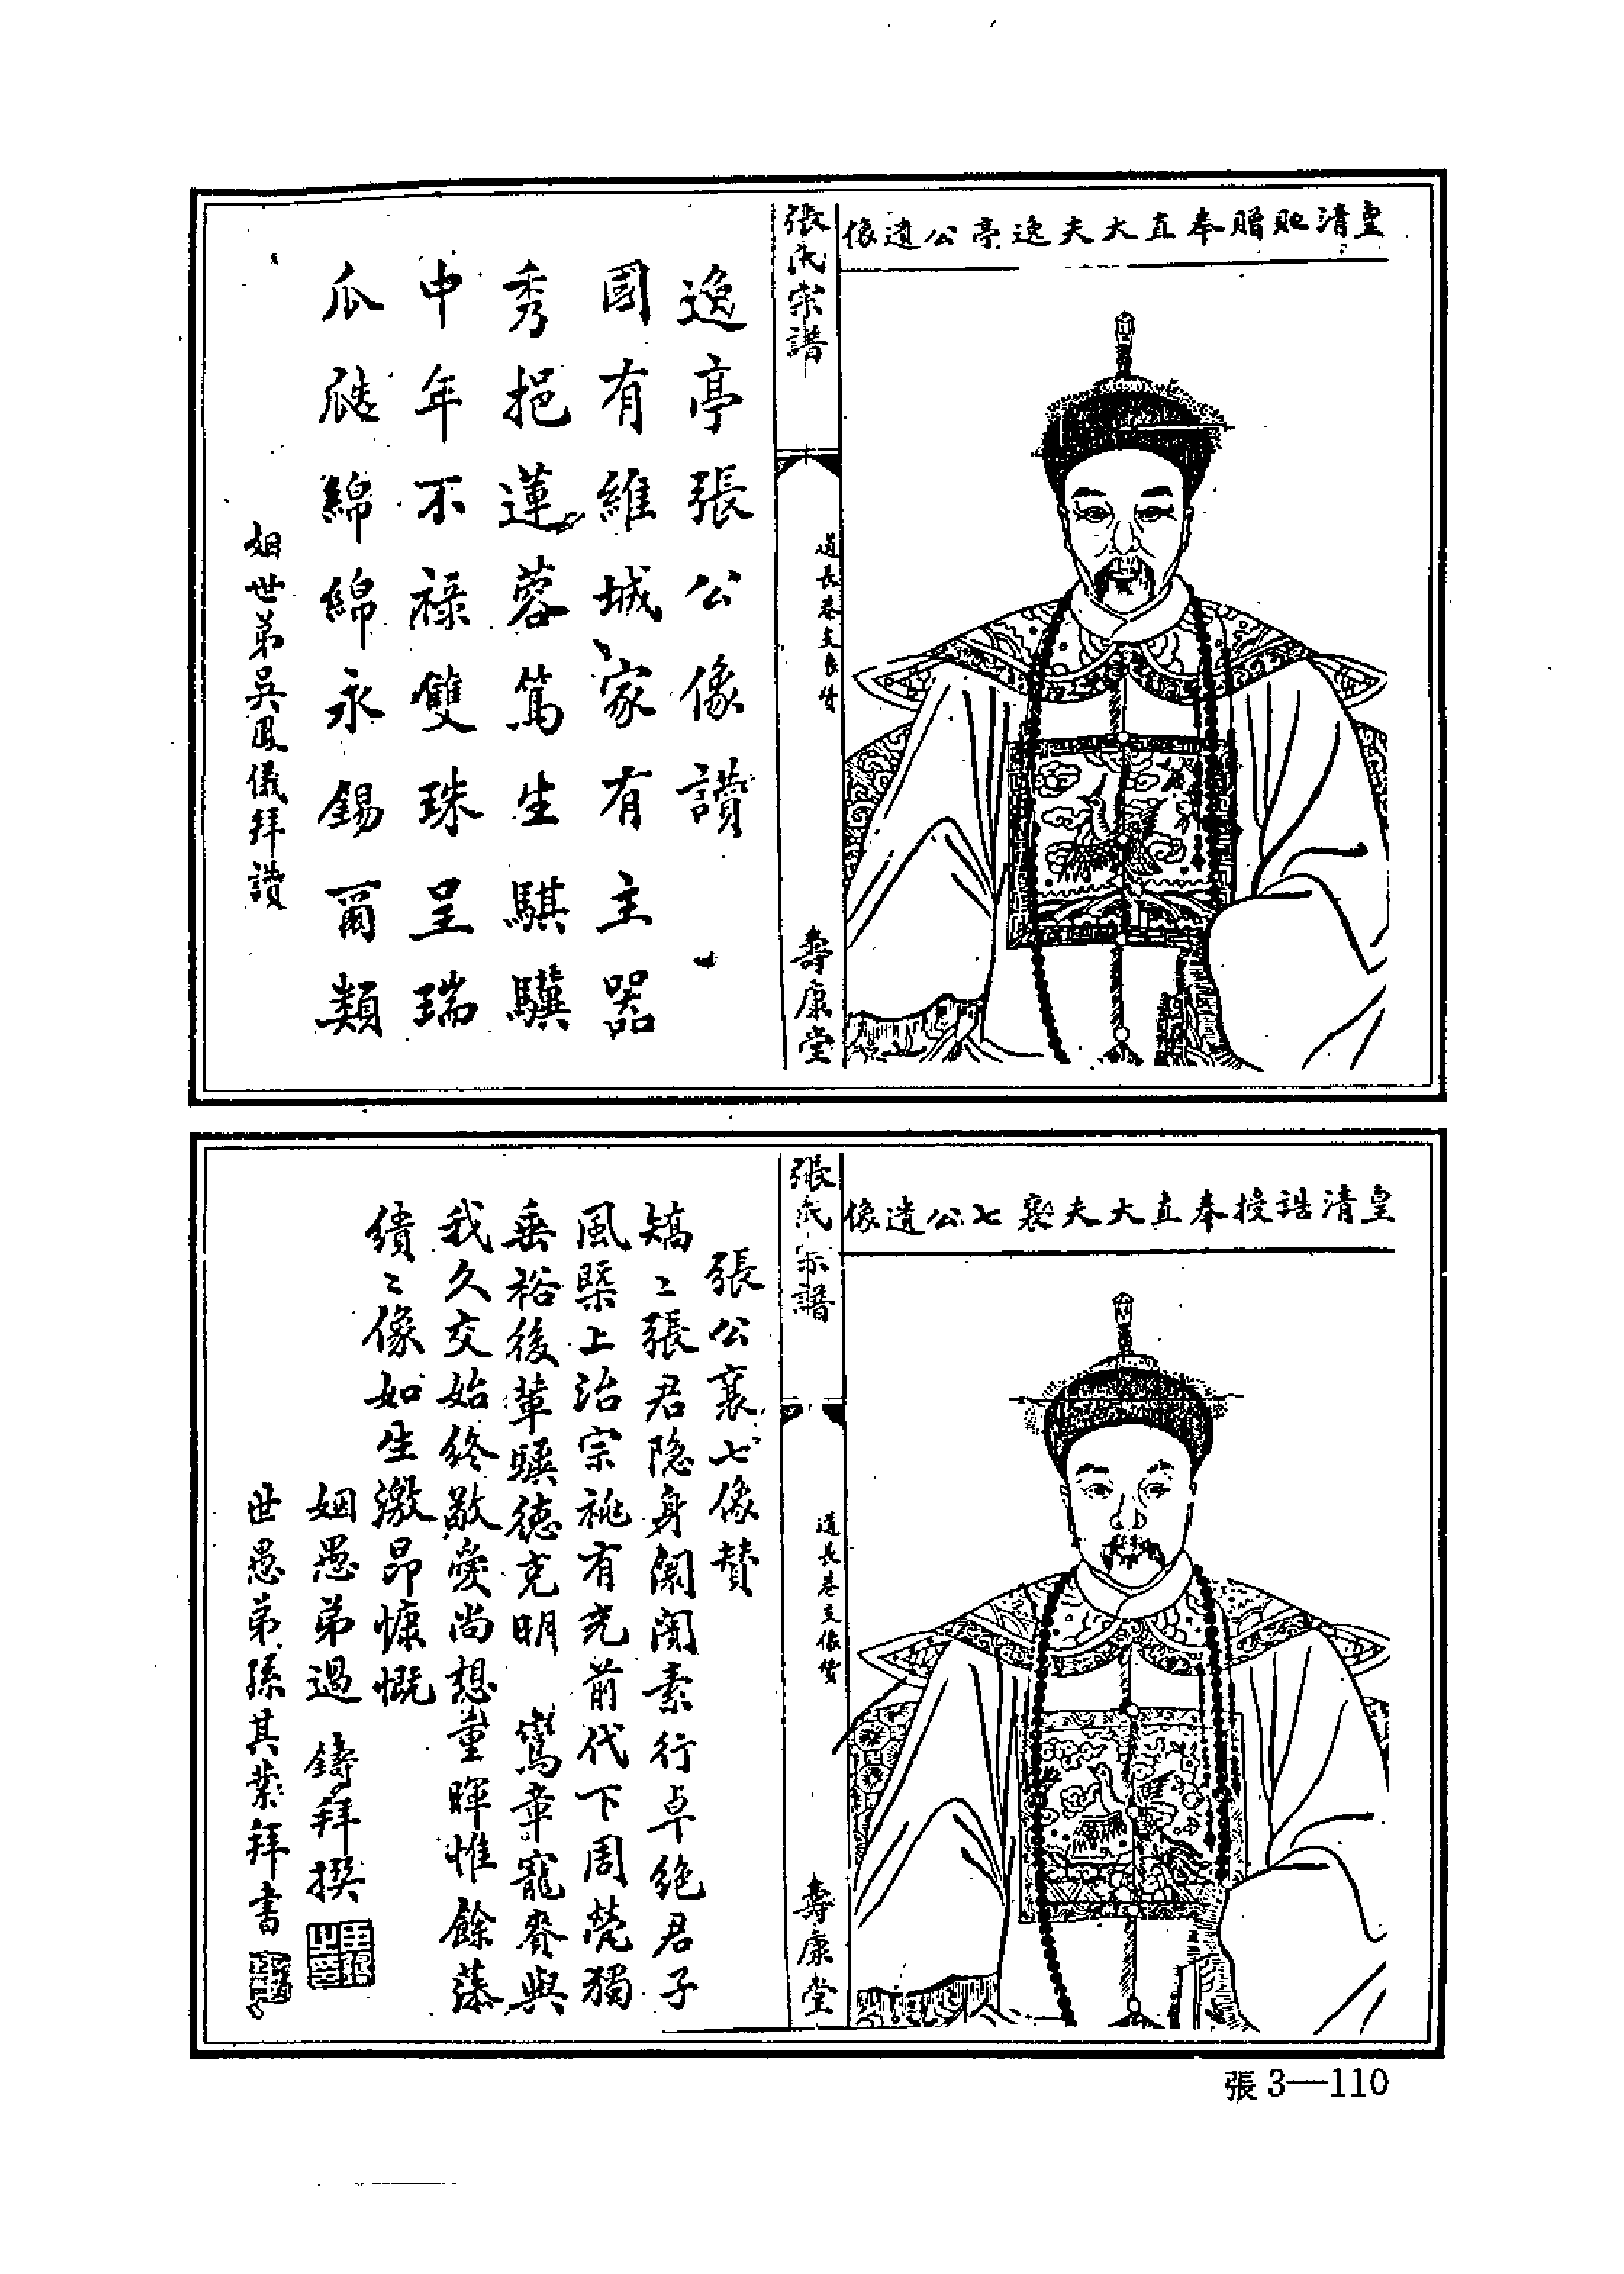 皇清貤贈奉直大夫逸亭公遺像
張氏宗譜
道長巷支像贊
壽康堂
逸亭張公像讚
國有維城家有主器
秀挹蓮蓉篤生騏驥
中年不祿雙珠呈瑞
瓜瓞綿綿永錫爾類
姻世弟吳鳳儀拜讚
皇清誥授奉直大夫襄七公遺像
張氏宗譜
道長巷支像贊
壽康堂
張公襄七像贊
矯〻張君隐身闤闠素行卓絶君子
風槩上治宗祧有光前代下周煢獨
垂裕後輩驥德克明 鸞章寵賚與
我久交始終敬愛尚想童暉惟餘藻
繢〻像如生激昂慷慨
姻愚弟過鑄拜撰
世愚弟孫其業拜書
張3—110